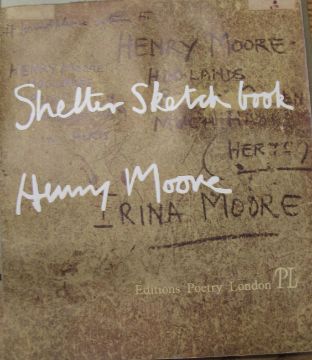 HENRY MOORE
HENRY MOORE
HOGLANDS
Shelter Sketch book
MUCH HADHAM
(HERTS)
Henry Moore
IRINA MOORE
Editions Poetry London PL